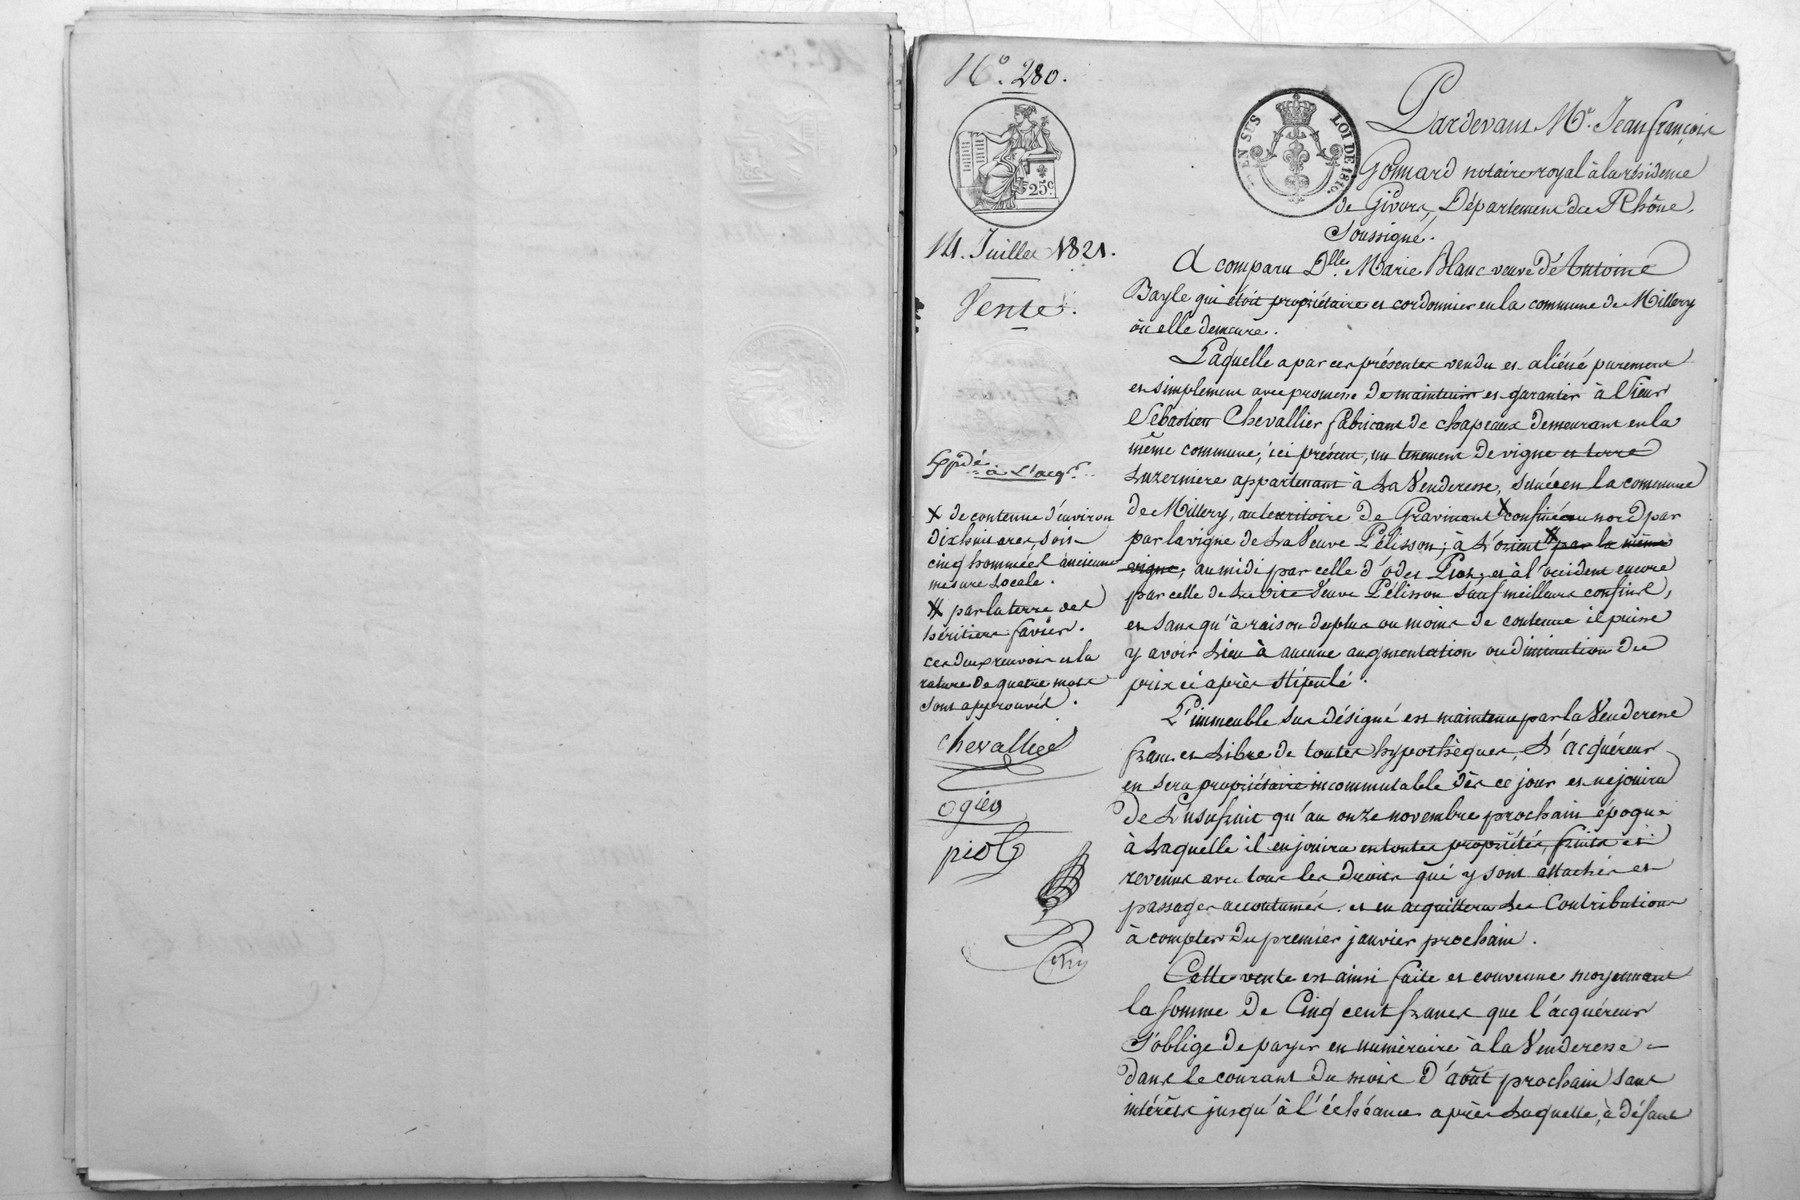 N.º 280.
25.c
EN SUS
LOI DE 1816.
14. Juillet 1821.
Vente.
Expdé
à l'acqr
X de contenue d'environ
dix huit ares, soit
cinq hommées ancienne
mesure locale.
# par la terre des
héritiers favier.
ces deux renvois et la
rature de quatre mots
sont approuvés.
chevallier
ogier
piot
Pardevant Me. Jean françois
Gonnard notaire royal à la résidence
de Givors, Département du Rhône,
Soussigné.
A comparu Dlle. Marie Blanc veuve d'Antoine
Bayle qui étoit propriétaire et cordonnier en la commune de Millery
où elle demeure.
Laquelle a par ces présentes vendu et aliéné purement
et simplement avec promesse de maintenir et garantir à Sieur
Sébastien Chevallier fabricant de chapeaux demeurant en la
même commune, ici présent, un tenement de vigne et terre
luzerniere appartenant à la Venderesse, situé en la commune
de Millery, au territoire de Gravinant X confiné au nord par
par la vigne de la Veuve Pélisson; à l'orient # par la même
vigne; au midi par celle d'odet Piot, et à l'occident encore
par celle de la dite Veuve Pélisson sauf meilleurs confins,
et sans qu'à raison du plus ou moins de contenue il puisse
y avoir lieu à aucune augmentation ou diminution du
prix ci après stipulé.
L'immeuble sus désigné est maintenu par la Venderesse
franc et libre de toutes hypothèques, L'acquéreur
en sera propriétaire incommutable dès ce jour et ne jouira
de l'usufruit qu'au onze novembre prochain époque
à laquelle il en jouira en toutes propriétés, fruits et
revenus avec tous les droits qui y sont attachés et
passages accoutumés. et en acquittera les Contributions
à compter du premier janvier prochain.
Cette vente est ainsi faite et convenue moyennant
la somme de Cinq cent francs que l'acquéreur
s'oblige de payer en numéraire à la Venderesse
dans le courant du mois d'août prochain sans
intérêts jusqu'à l'échéance après laquelle, à défaut